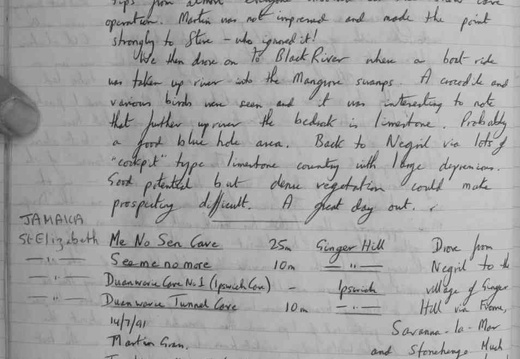 tips from almost everyone
operation. Martin was not impressed and made the point
strongly to Steve - who ignored it!
We then drove on to Black River where a boat ride
was taken up river into the Mangrove swamps. A crocodile and
various birds were seen and it was interesting to note
that further up river the bedrock is limestone. Probably
a good blue hole area. Back to Negril via lots of
"cockpit" type limestone country with large depressions.
Good potential but dense vegetation could make
prospecting difficult. A great day out.
JAMAICA
St Elizabeth Me No Sen Cave 25m Ginger Hill Drove from
— " — See me no more 10m — " — Negril to the
— " — Duanwarie Cave No.1 (Ipswich Cave) - Ipswich village of Ginger
— " — Duanwarie Tunnel Cave 10m — " — Hill via Frome,
14/7/91 Savanna-la-Mar
Martin Gran. and Stonehenge. Much